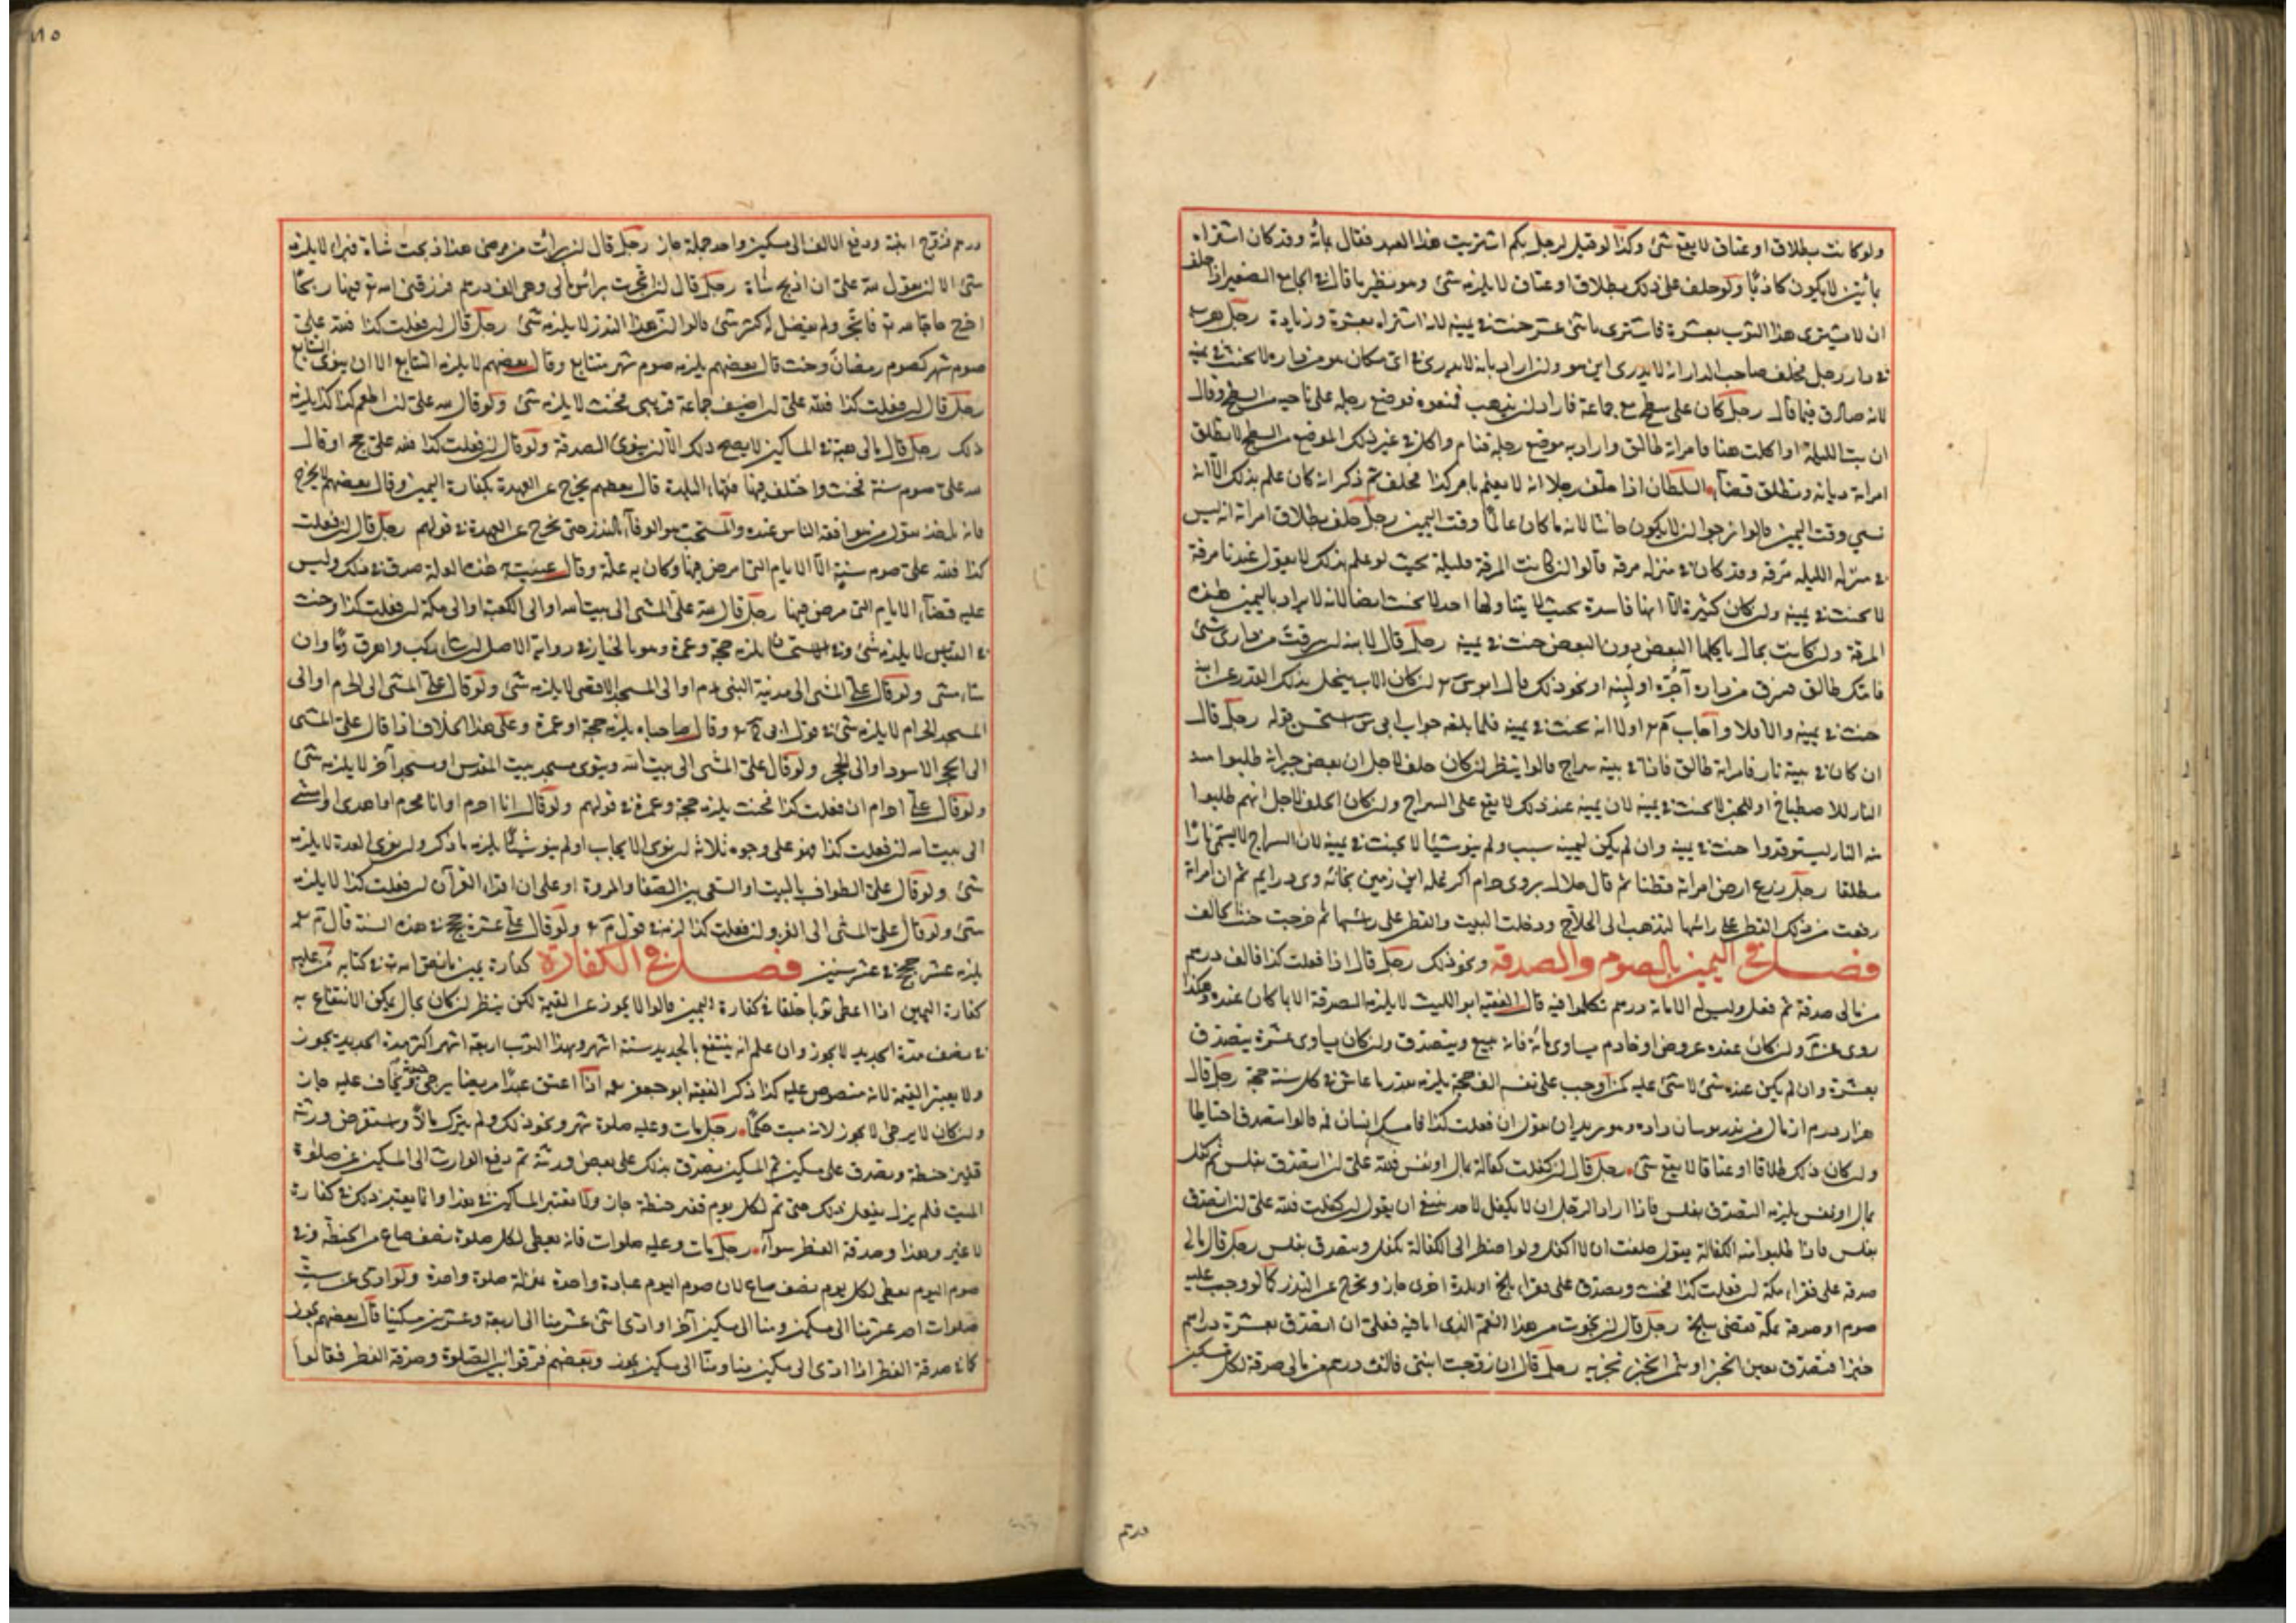 ولو كانت بطلاق او عتاق لا يقع شئ وكذا لو قيل لرجل بكم اشتريت هذا العبد فقال بمائة وقد كان اشتراه
بمأتين لا يكون كاذبًا ولو حلف على ذلك بطلاق او عتاق لا يلزمه شئ وهو نظير ما قال في الجامع الصغير اذا حلف
ان لا يشترى هذا الثوب بعشرة فاشترى باثنى عشر حنث في يمينه لانه اشتراه بعشرة وزيادة رجل هرب
في دار رجل فحلف صاحب الدار انه لا يدرى اين هو وان اراد بانه لا يدرى في اى مكان هو من داره لا يحنث في يمينه
لانه صادق فيما قال رجل كان على سطح مع جماعة فاراد ان يذهب فمنعوه فوضع رجله على ناحية من السطح وقال
ان بت الليلة او اكلت هنا فامراته طالق واراد به موضع رجله فنام واكل في غير ذلك الموضع من السطح لا تطلق
امراته ديانة وتطلق قضآء السلطان اذا حلف رجلا انه لا يعلم بامر كذا فحلف ثم ذكر انه كان علم بذلك الا انه
نسي وقت اليمين قالوا نرجوا ان لا يكون حانثا لانه ما كان عالمًا وقت اليمين رجل حلف بطلاق امراته انه ليس
في منزله الليلة مرقة وقد كان في منزله مرقة قالوا ان كانت المرقة قليلة بحيث لو علم بذلك لا يقول عندنا مرقة
لا يحنث في يمينه وان كان كثيرة الا انها فاسدة بحيث لا يتناولها احد لا يحنث ايضا لانه لا يراد باليمين هذه
المرقة وان كانت بحال ياكلها البعض دون البعض حنث في يمينه رجل قال لابنه ان سرقت من دارى شئ
فامك طالق فسرق من داره آجره او لبنه او نحو ذلك قال ابو س ان كان الاب يبخل بذلك القدر عن ابنه
حنث في يمينه والا فلا واجاب اولا انه يحنث في يمينه فلما بلغه جواب ابى س استحسن قوله رجل قال
ان كان في بيته نار فامراته طالق فاذا في بيته سراج قالوا ينظر ان كان حلف لاجل ان بعض جيرانه طلبوا منه
النار للاصطباخ او للخبز لا يحنث في يمينه لان يمينه عند ذلك لا يقع على السراج وان كان الحلف لاجل انهم طلبوا
منه النار ليستوقدوا حنث في يمينه وان لم يكن ليمينه سبب ولم ينو شيئا لا يحنث في يمينه لان السراج لا يسمى نارًا
مطلقا رجل زرع ارض امراته قطنا ثم قال حلال بروى حرام اكر غله اين زمين بخانه وى درايم ثم ان امراته
رفعت من ذلك القطن على راسها لتذهب الى الحلاج ودخلت البيت والقطن على رأسها ثم خرجت حنث الحالف
فصل في اليمين بالصوم والصدقة ونحو ذلك رجل قال اذا فعلت كذا فالف درهم
من مالى صدقة ثم فعل وليس له الا مائة درهم تكلموا فيه قال الفقيه ابو الليث لا يلزمه الصدقة الا بما كان عنده وهكذا
روى عن م وان كان عنده عروض او خادم يساوى مائة فانه يبيع ويتصدق وان كان يساوى عشرة يتصدق
بعشرة وان لم يكن عنده شئ لا شئ عليه كمن اوجب على نفسه الف حجة يلزمه بقدر ما عاش في كل سنة حجة رجل قال
هزار درم از مال من بدرويشان داده وهو يريد ان يقول ان فعلت كذا فامسك انسان فمه قالوا يتصدق احتياطا
وان كان ذلك طلاقا او عتاقا لا يقع شئ رجل قال ان كفلت كفالة بمال او نفس فلله على ان اتصدق بفلس ثم كفل
بمال او نفس يلزمه التصدق بفلس فاذا اراد الرجل ان لا يكفل لاحد ينبغى ان يقول ان كفلت فلله على ان اتصدق
بفلس فاذا طلبوا منه الكفالة يقول حلفت ان لا اكفل ولو اضطر الى الكفالة تكفل ويتصدق بفلس رجل قال مالى
صدقة على فقراء مكة ان فعلت كذا فحنث وتصدق على فقراء بلخ او بلدة اخرى جاز ويخرج عن النذر كما لو وجب عليه
صوم او صدقة بمكة فقضى ببلخ رجل قال ان نجوت من هذا الغم الذى انا فيه فعلى ان اتصدق بعشرة دراهم
خبزا فتصدق بعين الخبز او بثمن الخبز يجزيه رجل قال ان زوجت ابنتى فالف درهم من مالى صدقة لكل مسكين
درهم
درهم فزوج ابنته ودفع الالف الى مسكين واحد جملة جاز رجل قال ان برأت من مرضى هذا ذبحت شاة فبراء لا يلزمه
شئ الا ان يقول لله على ان اذبح شاة رجل قال ان اتجرت برأس مالى وهى الف درهم فرزقنى الله تع فيها ربحًا
اخرج حاجا لله ته فاتجر ولم يفضل له كثير شئ قالوا ان هذا النذر لا يلزمه شئ رجل قال ان فعلت كذا فلله على
صوم شهر كصوم رمضان وحنث قال بعضهم يلزمه صوم شهر متتابع وقال بعضهم لا يلزمه التتابع الا ان ينوى التتابع
رجل قال ان فعلت كذا فلله على ان اضيف جماعة قريبى فحنث لا يلزمه شئ ولو قال لله على ان اطعم كذا كذا يلزمه
ذلك رجل قال مالى هبة في المساكين لا يصح ذلك الا ان ينوى الصدقة ولو قال ان فعلت كذا فلله على حج او قال
لله على صوم سنة فحنث واختلف فيها فقهاء البلدة قال بعضهم يخرج عن العهدة بكفارة اليمين وقال بعضهم لا يخرج
فانه ياخذ بقول من هو افقه الناس عنده والمستحب هو الوفآء بالنذر حتى يخرج عن العهدة في قولهم رجل قال ان فعلت
كذا فلله على صوم سنة الا الايام التى امرض فيها وكان به علة وقال عنيت هذه العلة صدق في ذلك وليس
عليه قضآء الايام التى مرض فيها رجل قال لله على المشى الى بيت الله او الى الكعبة او الى مكة ان فعلت كذا وحنث
في القياس لا يلزمه شئ وفي الاستحسان يلزمه حجة وعمرة وهو بالخيار في رواية الاصل ان شاء ركب واهرق دمًا وان
شاء مشى ولو قال على المشى الى مدينة النبى عم او الى المسجد الاقصى لا يلزمه شئ ولو قال على المشى الى الحرم او الى
المسجد الحرام لا يلزمه شئ في قول ابى ح وقال صاحباه يلزمه حجة او عمرة وعلى هذا الخلاف اذا قال على المشى
الى الحجر الاسود او الى الحجر ولو قال على المشى الى بيت الله وينوى مسجد بيت المقدس او مسجد آخر لا يلزمه شئ
ولو قال على احرام ان فعلت كذا فحنث يلزمه حجة وعمرة في قولهم ولو قال انا احرم او انا محرم او اهدى او امشى
الى بيت الله ان فعلت كذا فهو على وجوه ثلاثة ان نوى الايجاب او لم ينو شيئًا يلزمه ما ذكر وان نوى العدة لا يلزمه
شئ ولو قال على الطواف بالبيت او السعى بين الصفا والمروة او على ان اقراء القرآن ان فعلت كذا لا يلزمه
شئ ولو قال على المشى الى الغزو ان فعلت كذا لزمه في قول م ولو قال على عشرة حجج في هذه السنة قال م
يلزمه عشر حجج في عشر سنين فصل في الكفارة كفارة يمين ما نطق الله ته في كتابه من عليه
كفارة اليمين اذا اعطى ثوبا خلقا في كفارة اليمين قالوا لا يجوز عن القيمة لكن ينظر ان كان بحال يمكن الانتفاع به
في نصف مدة الجديد لا يجوز وان علم انه ينتفع بالجديد ستة اشهر وبهذا الثوب اربعة اشهر اكثر مدة الجديد يجوز
ولا يعتبر القيمة لانه منصوص عليه كذا ذكر الفقيه ابو جعفر اذا اعتق عبدًا مريضا يرجى ويخاف عليه جاز
وان كان لا يرجى لا يجوز لانه ميت حكمًا رجل مات وعليه صلوة شهر ونحو ذلك ولم يترك مالاً واستقرض ورثته
قفيز حنطة وتصدق على مسكين ثم المسكين تصدق بذلك على بعض ورثته ثم دفع الوارث الى المسكين عن صلوة
الميت فلم يزل يفعل ذلك حتى تم لكل يوم قفيز حنطة جاز ولا يعتبر المساكين في هذا وانما يعتبر ذلك في كفارة
لا غير وهذا وصدقة الفطر سوآء رجل مات وعليه صلوات فانه يعطى لكل صلوة نصف صاع من الحنطة وفي
صوم اليوم يعطى لكل يوم نصف صاع لان صوم اليوم عبادة واحدة بمنزلة صلوة واحدة ولو ادى عن ست
صلوات احد عشر منا الى مسكين ومنا الى مسكين آخر او ادى اثنى عشر منا الى اربعة وعشرين مسكينا قال بعضهم يجوز
كما في صدقة الفطر اذا ادى الى مسكين منا ومنا الى مسكين يجوز وبعضهم فرقوا بين الصلوة وصدقة الفطر فقالوا